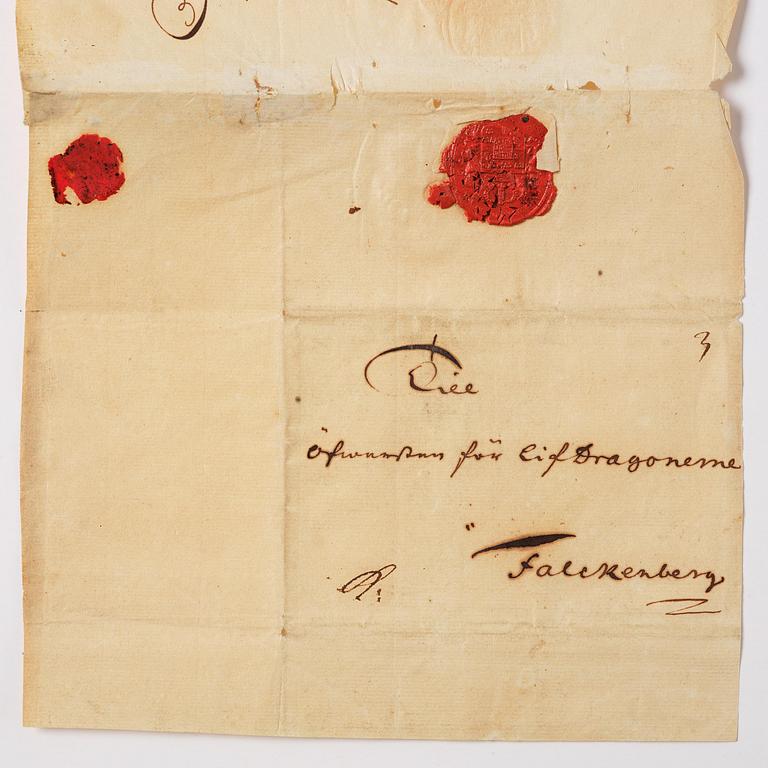 3
Till
Öfwersten för LifDragonerne
Falckenberg